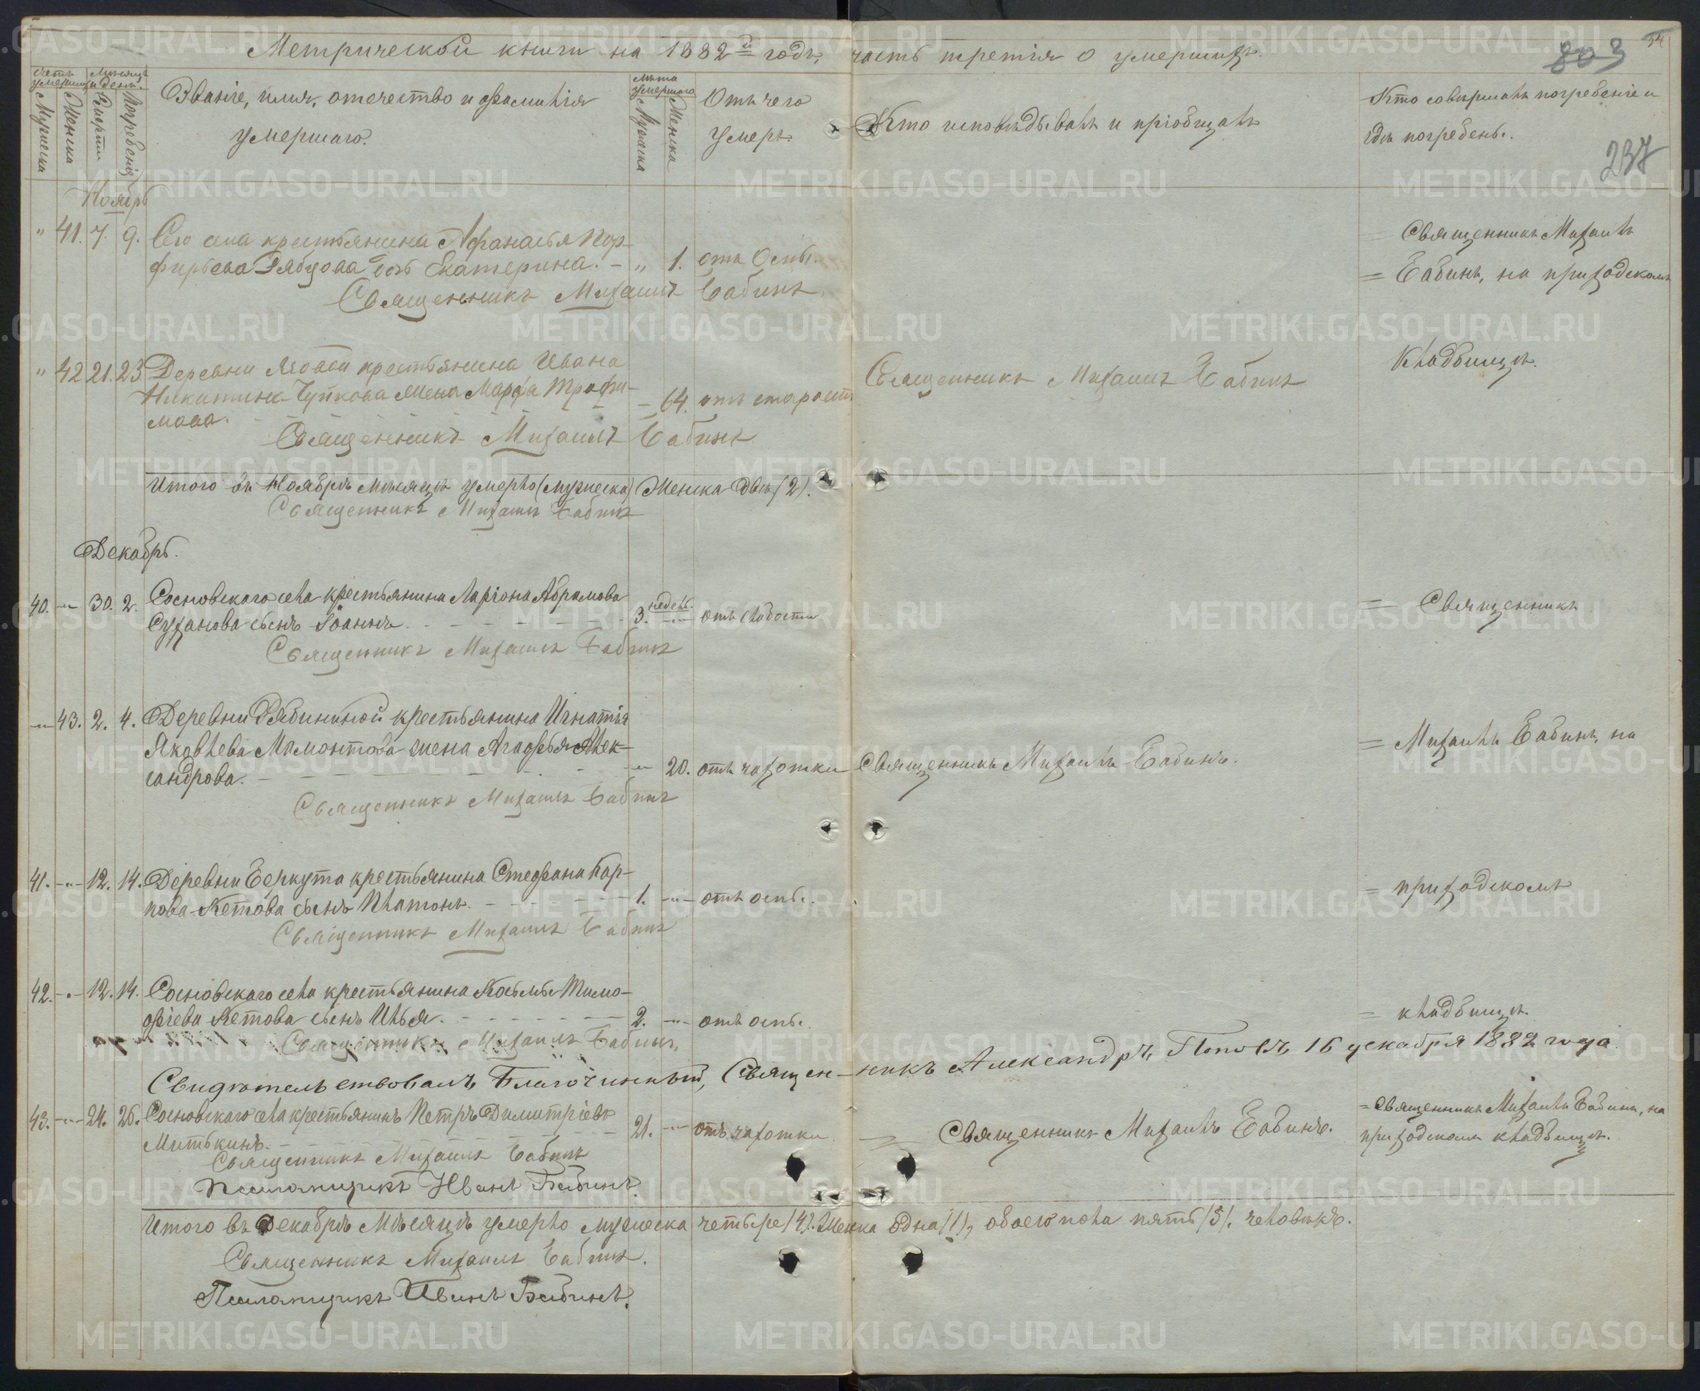 Метрической книги на 1882й годъ, часть третія о умершихъ.
803
34
237
Счетъ умершихъ
Мужеска
Женска
Мѣсяцъ и день.
Смерти
Погребенія
Званіе, имя, отчество и фамилія
умершаго.
Лѣта умершаго
Мужеска
Женска
Отъ чего
умеръ.
Кто исповѣдывалъ и пріобщалъ
Кто совершалъ погребеніе и
гдѣ погребены.
Ноябрь
" 41. 7. 9. Его села крестьянина Афанасья Пор-
фирьева дочь Екатерина. — " 1. отъ Оспы.
Священникъ Михаилъ Бабинъ
Священникъ Михаилъ
= Бабинъ, на приходскомъ
" 42 21. 23 Деревни крестьянина Ивана
Никитина жена Марфа Трофи-
мова. — 64. отъ старости
Священникъ Михаилъ Бабинъ
Священникъ Михаилъ Бабинъ
Кладбищѣ.
Итого въ Ноябрѣ мѣсяцѣ умерло (мужеска) Женска двѣ (2).
Священникъ Михаилъ Бабинъ
Декабрь.
40. — 30. 2. Сосновскаго села крестьянина Ларіона Абрамова
Суханова сынъ Іоаннъ. 3. недѣль. — отъ слабости
Священникъ Михаилъ Бабинъ
= Священникъ
— 43. 2. 4. Деревни Рябининой крестьянина Игнатія
Яковлева Мамонтова жена Агафья Алек-
сандрова. — 20. отъ чахотки Священникъ Михаилъ Бабинъ.
Священникъ Михаилъ Бабинъ
= Михаилъ Бабинъ, на
41. — 12. 14. Деревни Беркута крестьянина Стефана Кар-
пова Кетова сынъ Платонъ. 1. — отъ оспы.
Священникъ Михаилъ Бабинъ
= приходскомъ
42. — 12. 14. Сосновскаго села крестьянина Козьмы Тимо-
фіева Кетова сынъ Илья. 2. — отъ оспы.
Священникъ Михаилъ Бабинъ,
= кладбищѣ
Свидѣтельствовалъ Благочинный, Священникъ Александръ Поповъ 16 декабря 1882 года
43. — 24. 26. Сосновскаго села крестьянинъ Петръ Димитріевъ
Митькинъ. 21. — отъ чахотки. Священникъ Михаилъ Бабинъ.
= Священникъ Михаилъ Бабинъ, на
приходскомъ кладбищѣ.
Священникъ Михаилъ Бабинъ
Псаломщикъ Иванъ Бабинъ.
Итого въ Декабрѣ мѣсяцѣ умерло мужеска четыре (4). Женска одна (1), обоего пола пять (5). человѣкъ.
Священникъ Михаилъ Бабинъ.
Псаломщикъ Иванъ Бабинъ.
METRIKI.GASO-URAL.RU